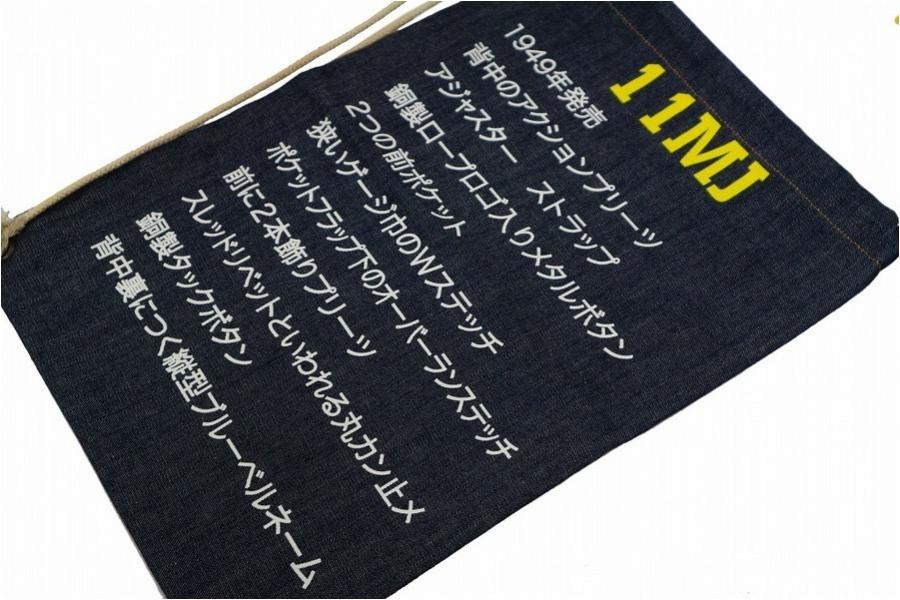 11MJ
1949年発売
背中のアクションプリーツ
アジャスター　ストラップ
銅製ロープロゴ入りメタルボタン
2つの前ポケット
狭いゲージ巾のWステッチ
ポケットフラップ下のオーバーランステッチ
前に2本飾りプリーツ
スレッドリベットといわれる丸カン止メ
銅製タックボタン
背中裏につく縦型ブルーベルネーム